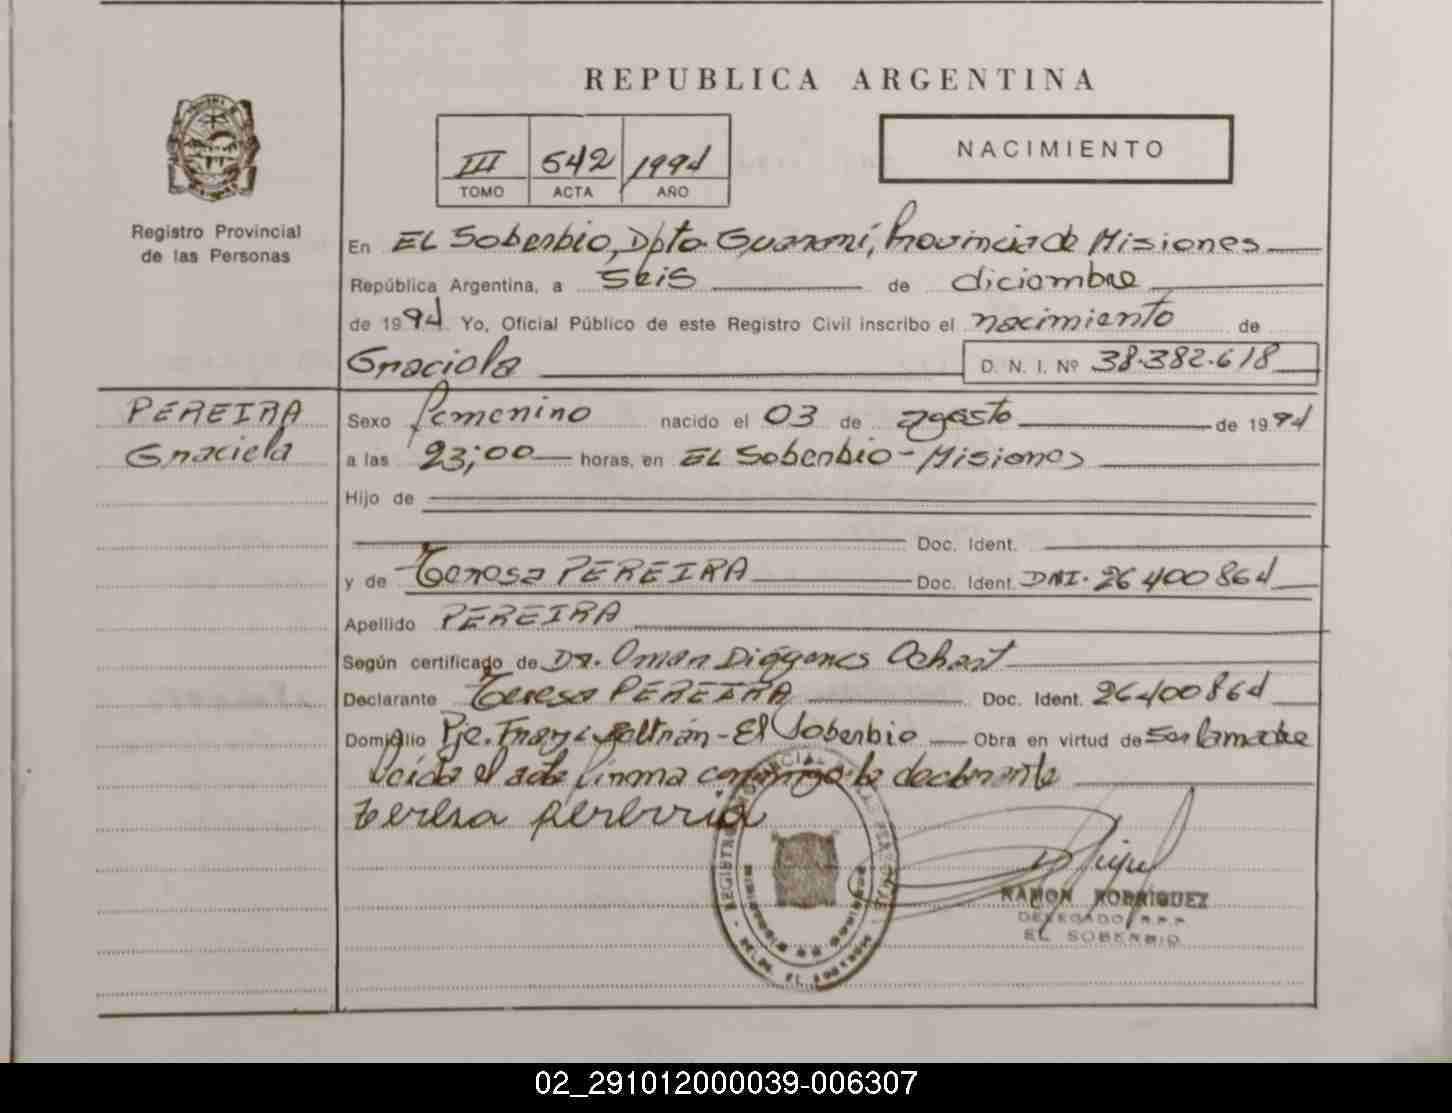 REPUBLICA ARGENTINA
III 542 1994
TOMO ACTA AÑO
NACIMIENTO
Registro Provincial
de las Personas
En EL Soberbio, Dpto. Guaraní, Provincia de Misiones
República Argentina, a seis de diciembre
de 1994. Yo, Oficial Público de este Registro Civil inscribo el nacimiento de
Graciela D. N. I. Nº 38.382.618
PEREIRA
Graciela
Sexo femenino nacido el 03 de agosto de 1994
a las 23;00 horas, en EL Soberbio - Misiones
Hijo de
Doc. Ident.
y de Teresa PEREIRA Doc. Ident. DNI. 26400864
Apellido PEREIRA
Según certificado de Dr. Omar Diógenes
Declarante Teresa PEREIRA Doc. Ident. 26400864
Domicilio Pje. Fray L Beltrán - El Soberbio Obra en virtud de ser la madre
Leída el acta firma conmigo la declarante
teresa pererria
REGISTRO PROVINCIAL DE LAS PERSONAS
RAMON RODRIGUEZ
DELEGADO R.P.P.
EL SOBERBIO
02_291012000039-006307